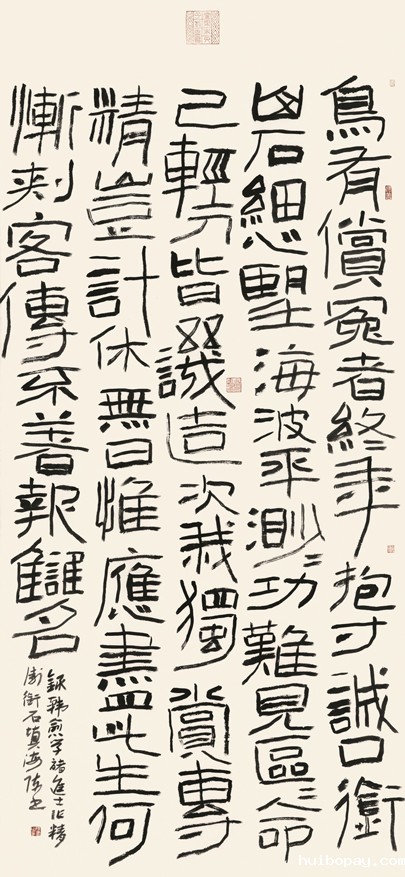 鳥有償冤者終年抱寸誠口銜
山石細心望海波平渺〻功難見區〻命
已輕人皆譏造次我獨賞專
精豈計休無日惟應盡此生何
慚刺客傳不著報讎名
錄韓愈學諸進士作精
衛銜石填海
huibopay.com